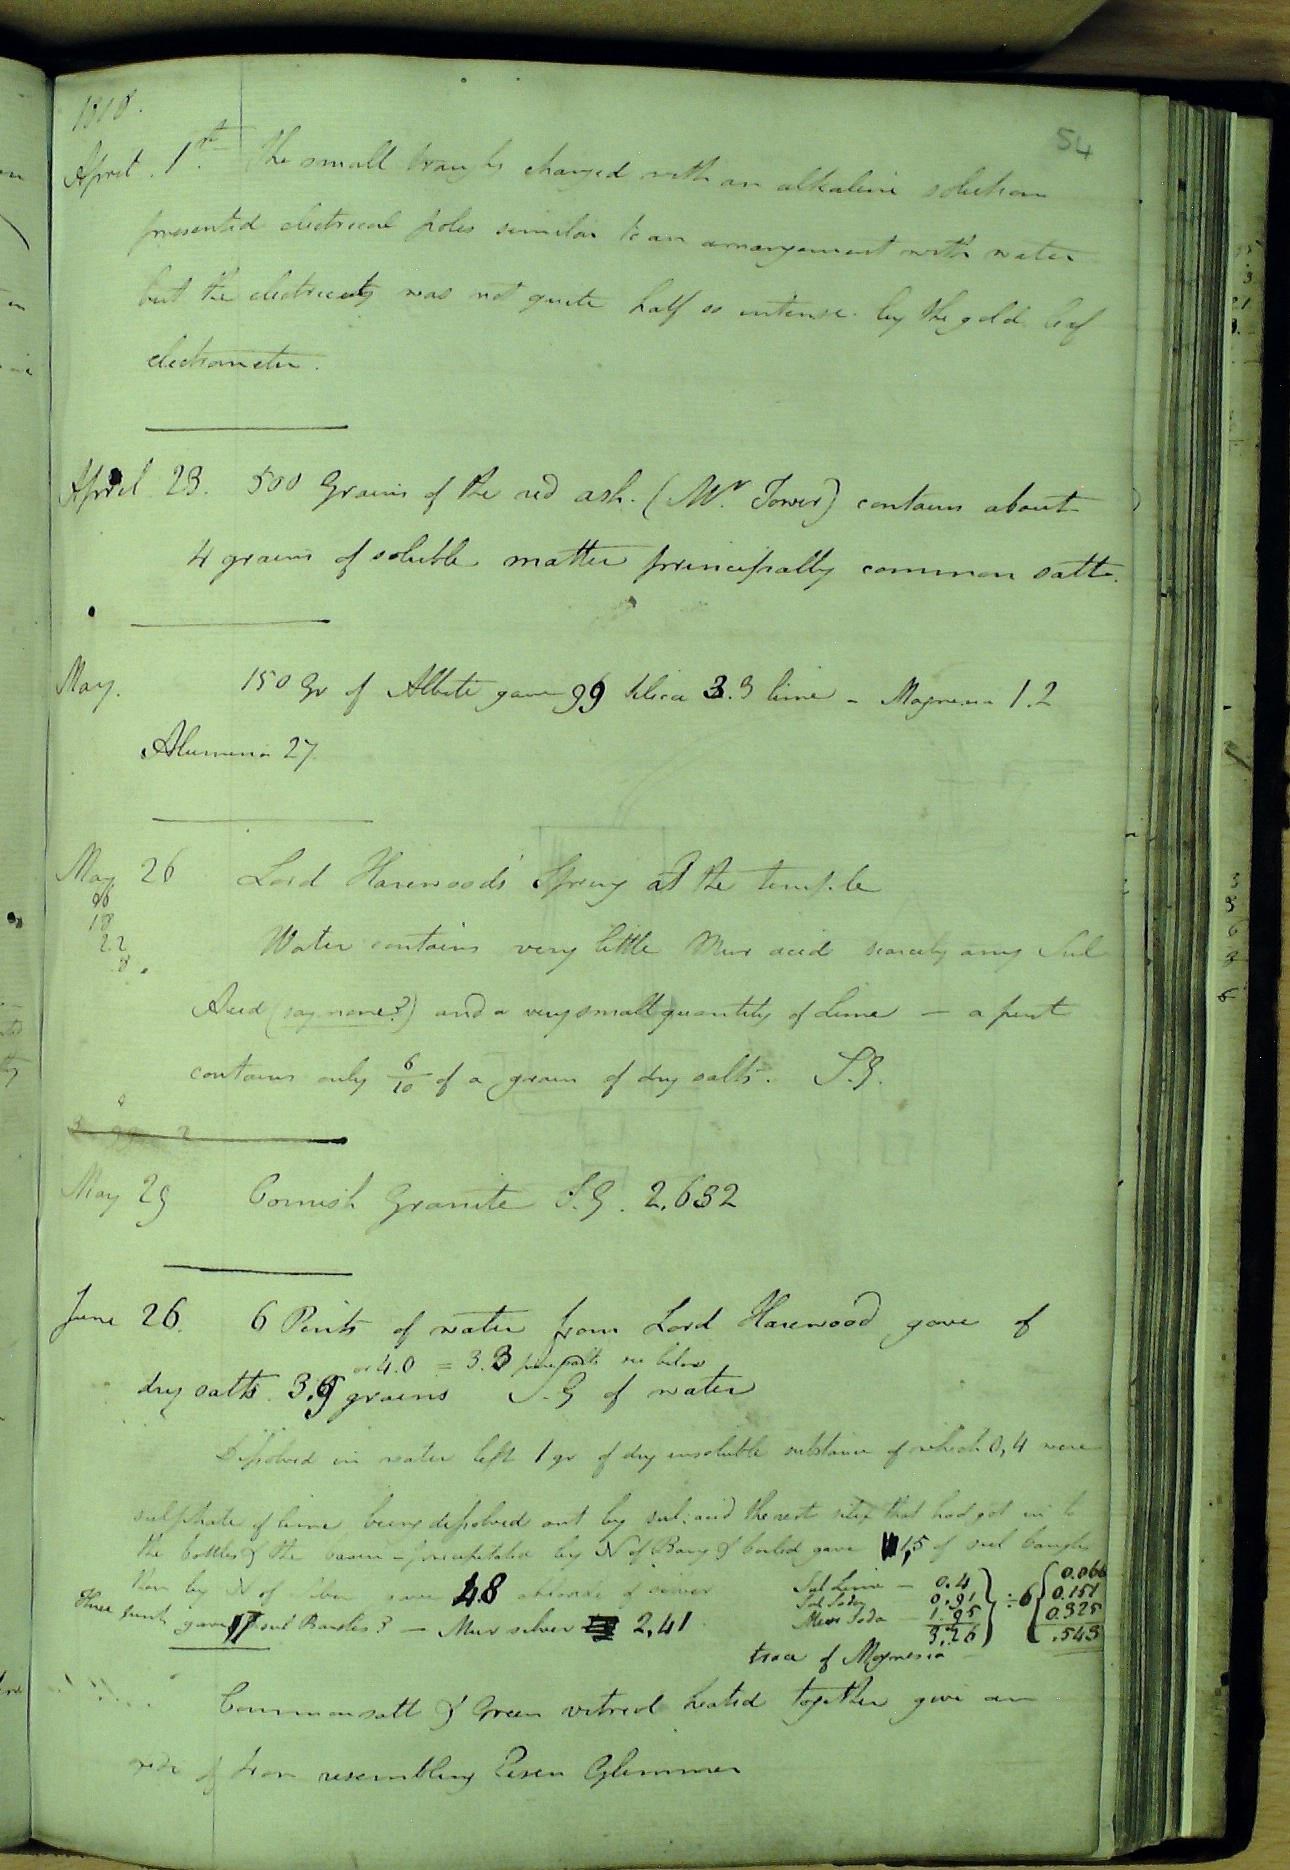 54
1818.
April 1st. The small troughs charged with an alkaline solution
presented electrical poles similar to an arrangement with water
but the electricity was not quite half so intense by the gold leaf
electrometer.
April 23. 500 Grains of the red ash. (Mr. Tower) contains about
4 grains of soluble matter principally common salt.
May. 150 Gr of Albite gave 99 Silica 3.3 lime - Magnesia 1.2
Alumina 27
May 26 Lord Harewoods Spring at the temple
96
18
22
8
Water contains very little Mur acid scarcely any Sul
Acid (say none?) and a very small quantity of Lime – a pint
contains only 6/10 of a grain of dry salts. S.G.
May 29 Cornish Granite S.G. 2,632
June 26. 6 Pints of water from Lord Harewood gave of
or 4.0 = 3.3 pure salts see below
dry salts. 3.9 grains S.G of water
Dissolved in water left 1 gr of dry insoluble substance of which 0,4 were
sulphate of lime being dissolved out by sul: acid the rest silex that had got in to
the bottles & the basin - precipitated by N of Bary & boiled gave 1,5 of sul barytes
then by N of Silver gave 48 chloride of silver
Three pints gave 17 sul Barytes? – Mur silver 2,41
Sul Lime – 0.4
Sul Soda 0.91
Mur Soda – 1.95
3.26
÷ 6
0.066
0.151
0.325
.543
trace of Magnesia –
Common salt & Green vitreol heated together give an
oxide of Iron resembling Eisen Glimmer